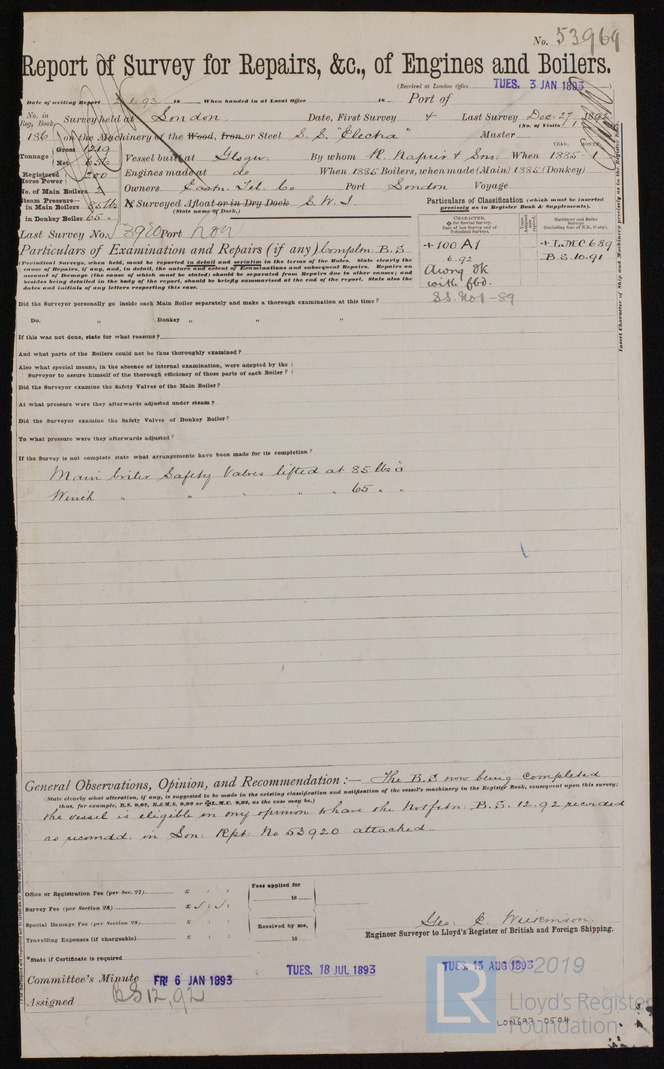 No. 53969
Report of Survey for Repairs, &c., of Engines and Boilers.
(Received at London Office TUES. 3 JAN 1893
Date of writing Report 2.1.93 18 When handed in at Local Office 18 Port of
No. in Reg. Book. Survey held at London. Date, First Survey + Last Survey Dec. 27 1892
(No. of Visits 1
136 on the Machinery of the Wood, Iron or Steel S.S. "Electra" Master
Tonnage Gross 1219 Net 656 Vessel built at Glasgw. By whom R. Napier & Sons When YEAR. 1885 MONTH. 1
Registered Horse Power 200 Engines made at do When 1885 Boilers, when made (Main) 1885 (Donkey)
No. of Main Boilers 2 Owners Eastn. Tel. Co Port London Voyage
Steam Pressure in Main Boilers 85 lbs Surveyed Afloat or in Dry Dock S.W.I.
(State name of Dock.)
in Donkey Boiler 65
Particulars of Classification (which must be inserted precisely as in Register Book & Supplements).
Last Survey No. 3910 Port
CHARACTER. for Special Survey. Date of last Survey and of Periodical Surveys.
Machinery and Boiler Surveys (including date of N.B., if any).
+100 A1 + L.M.C. 6.89
6.92 B.S. 10.91
Awng dk
with fbd.
S.S. No 1 - 89
Insert Character of Ship and Machinery precisely as in the Register Book.
Particulars of Examination and Repairs (if any) Completn. B.S.
(Periodical Surveys, when held, must be reported in detail and seriatim in the terms of the Rules. State clearly the
cause of Repairs, if any, and, in detail, the nature and extent of Examinations and subsequent Repairs. Repairs on
account of Damage (the cause of which must be stated) should be separated from Repairs due to other causes; and
besides being detailed in the body of the report, should be briefly summarised at the end of the report. State also the
dates and initials of any letters respecting this case.
Did the Surveyor personally go inside each Main Boiler separately and make a thorough examination at this time?
Do. „ Donkey „ „ „
If this was not done, state for what reasons?
And what parts of the Boilers could not be thus thoroughly examined?
Also what special means, in the absence of internal examination, were adopted by the
Surveyor to assure himself of the thorough efficiency of those parts of each Boiler?
Did the Surveyor examine the Safety Valves of the Main Boiler?
At what pressure were they afterwards adjusted under steam?
Did the Surveyor examine the Safety Valves of Donkey Boiler?
To what pressure were they afterwards adjusted?
If the Survey is not complete state what arrangements have been made for its completion?
Main boiler Safety Valves lifted at 85 lbs
Winch „ „ „ „ „ 65 „ „
General Observations, Opinion, and Recommendation :— The B.S. now being completed
(State clearly what alteration, if any, is suggested to be made in the existing classification and notification of the vessel's machinery in the Register Book, consequent upon this survey;
thus, for example, B.S. 9,92, B.&M.S. 9,92 or L.M.C. 9,92, as the case may be.)
the vessel is eligible in my opinion to have the Notfctn: B.S. 12.92 recorded
as recomdd. in Lon: Rpt. No 53920 attached.
Office or Registration Fee (per Sec. 27) £ : :
Survey Fee (per Section 28) £
Special Damage Fee (per Section 28) £ : :
Travelling Expenses (if chargeable) £ : :
Fees applied for
18
Received by me,
18
*State if Certificate is required
Geo. E. Wilkinson.
Engineer Surveyor to Lloyd's Register of British and Foreign Shipping.
Committee's Minute FRI 6 JAN 1893 TUES. 18 JUL 1893 TUES. 15 AUG 1893
Assigned BS 12,92
LR © 2019
Lloyd's Register
Foundation
LON697-0504